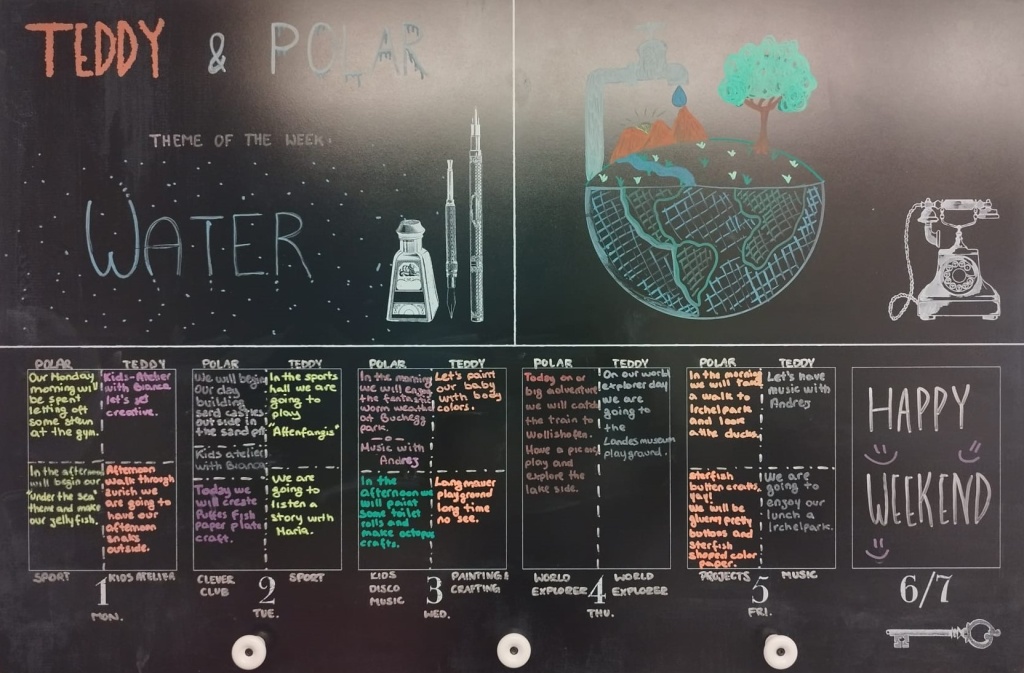 TEDDY & POLAR
THEME OF THE WEEK:
WATER
POLAR
Our Monday
morning will
be spent
letting off
some steun
at the gym.
In the afternoon
will begin our
"under the sea"
theme and make
our jellyfish.
SPORT
TEDDY
Kids-Atelier
with Bianca
let's get
creative.
Afternoon
walk through
zurich we
are going to
have our
afternoon
snaks
outside.
KIDS ATELIER
1
MON.
POLAR
We will begin
Our day
building
sand castles
outside in
the sand pit
Kids atelier
with Bianca
Today we
will create
Puffes Fish
paper plate
craft.
CLEVER
CLUB
TEDDY
In the sports
hall we are
going to
play
"Affenfangis"
We are
going to
listen a
story with
Maria.
SPORT
2
TUE.
POLAR
In the morning
we will enjoy
the fantastic
worm weather
at Buchegg
park.
Music with
Andrej
In the
afternoon we
will paint
some toilet
rolls and
make octopus
crafts.
KIDS
DISCO
MUSIC
TEDDY
Let's paint
our baby
with body
colors.
Langmauer
playground
long time
no see.
PAINTING &
CRAFTING
3
WED.
POLAR
Today on or
big adventure
we will catch
the train to
Wollishofen.
Have a picnic
play and
explore the
lake side.
WORLD
EXPLORER
TEDDY
On our world
explorer day
we are
going to
the
Landesmuseum
playground.
WORLD
EXPLORER
4
THU.
POLAR
In the morning
we will take
a walk to
Irchelpark
and look
at the ducks.
Starfish
button crafts,
yay!
We will be
glueing pretty
buttons and
Starfish
shaped color
paper.
PROJECTS
TEDDY
Let's have
music with
Andrej
We are
going to
enjoy our
lunch a
Irchelpark.
MUSIC
5
FRI.
HAPPY
WEEKEND
6/7